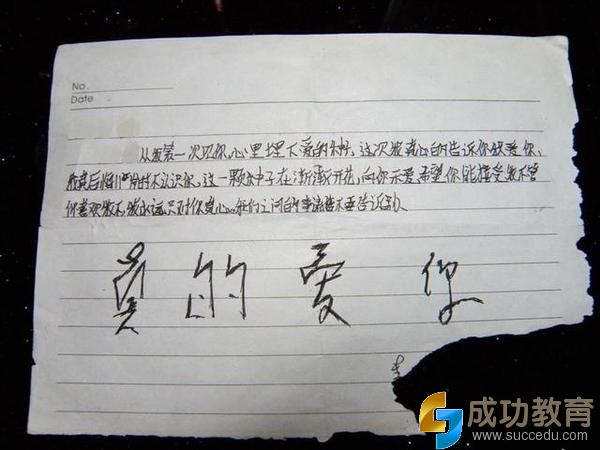 No.
Date
从我第一次见你,心里埋下爱的种子,这次我真心的告诉你我爱你,
不认识你,这一颗种子在渐渐开花,向你示爱希望你能接受我不管
你喜欢我不,我永远只对你真心。我们之间的事请不要告诉别人
真的爱你
李
成功教育
www.succedu.com